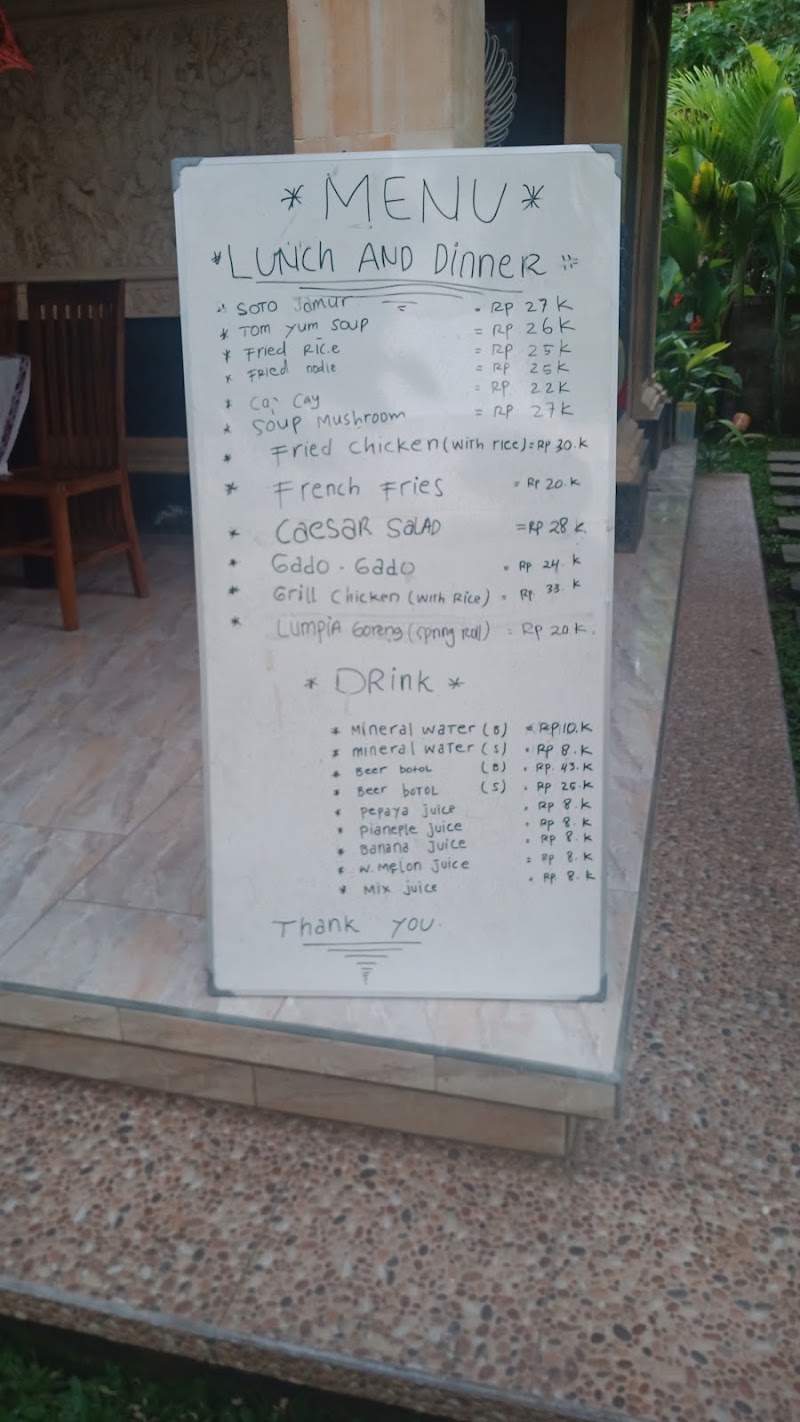 * MENU *
* LUNCH AND DINNER
* SOTO JAMUR = RP 27 K
* TOM YUM SOUP = RP 26 K
* FRIED RICE = RP 25 K
* FRIED NODLE = RP 25 K
* CAP CAY = RP 22 K
* SOUP MUSHROOM = RP 27 K
* FRIED CHICKEN (WITH RICE) = RP 30.K
* FRENCH FRIES = RP 20.K
* CAESAR SALAD = RP 28 K
* GADO . GADO = RP 24. K
* GRILL CHICKEN (WITH RICE) = RP 33. K
* LUMPIA GORENG (SPRING ROLL) = RP 20 K.
* DRINK *
* MINERAL WATER (B) = RP 10.K
* MINERAL WATER (S) = RP 8.K
* BEER BOTOL (B) = RP. 43.K
* BEER BOTOL (S) = RP 25.K
* PEPAYA JUICE = RP 8.K
* PIANEPLE JUICE = RP 8.K
* BANANA JUICE = RP 8.K
* W. MELON JUICE = RP 8.K
* MIX JUICE = RP 8.K
THANK YOU.